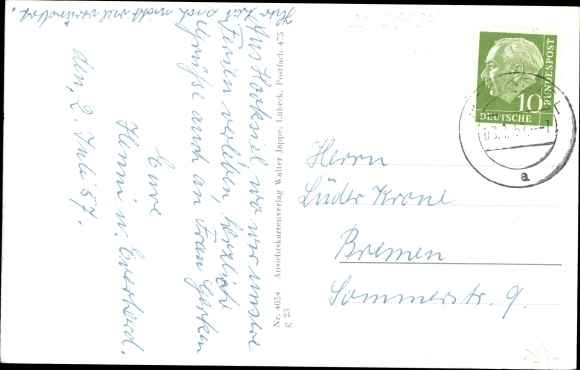 Aus Hooksiel wo wir unsere
Ferien verleben, herzliche
Grüße auch an Frau Gerken
Hier hat sich nicht viel verändert.
Eure
Henni u. Everhard.
den, 2. Juli 57.
Nr. 4054 Ansichtskartenverlag Walter Jappe, Lübeck, Postfach 475
g 23
DEUTSCHE
BUNDESPOST
10
a
Herrn
Lüder Krone
Bremen
Sommerstr. 9.